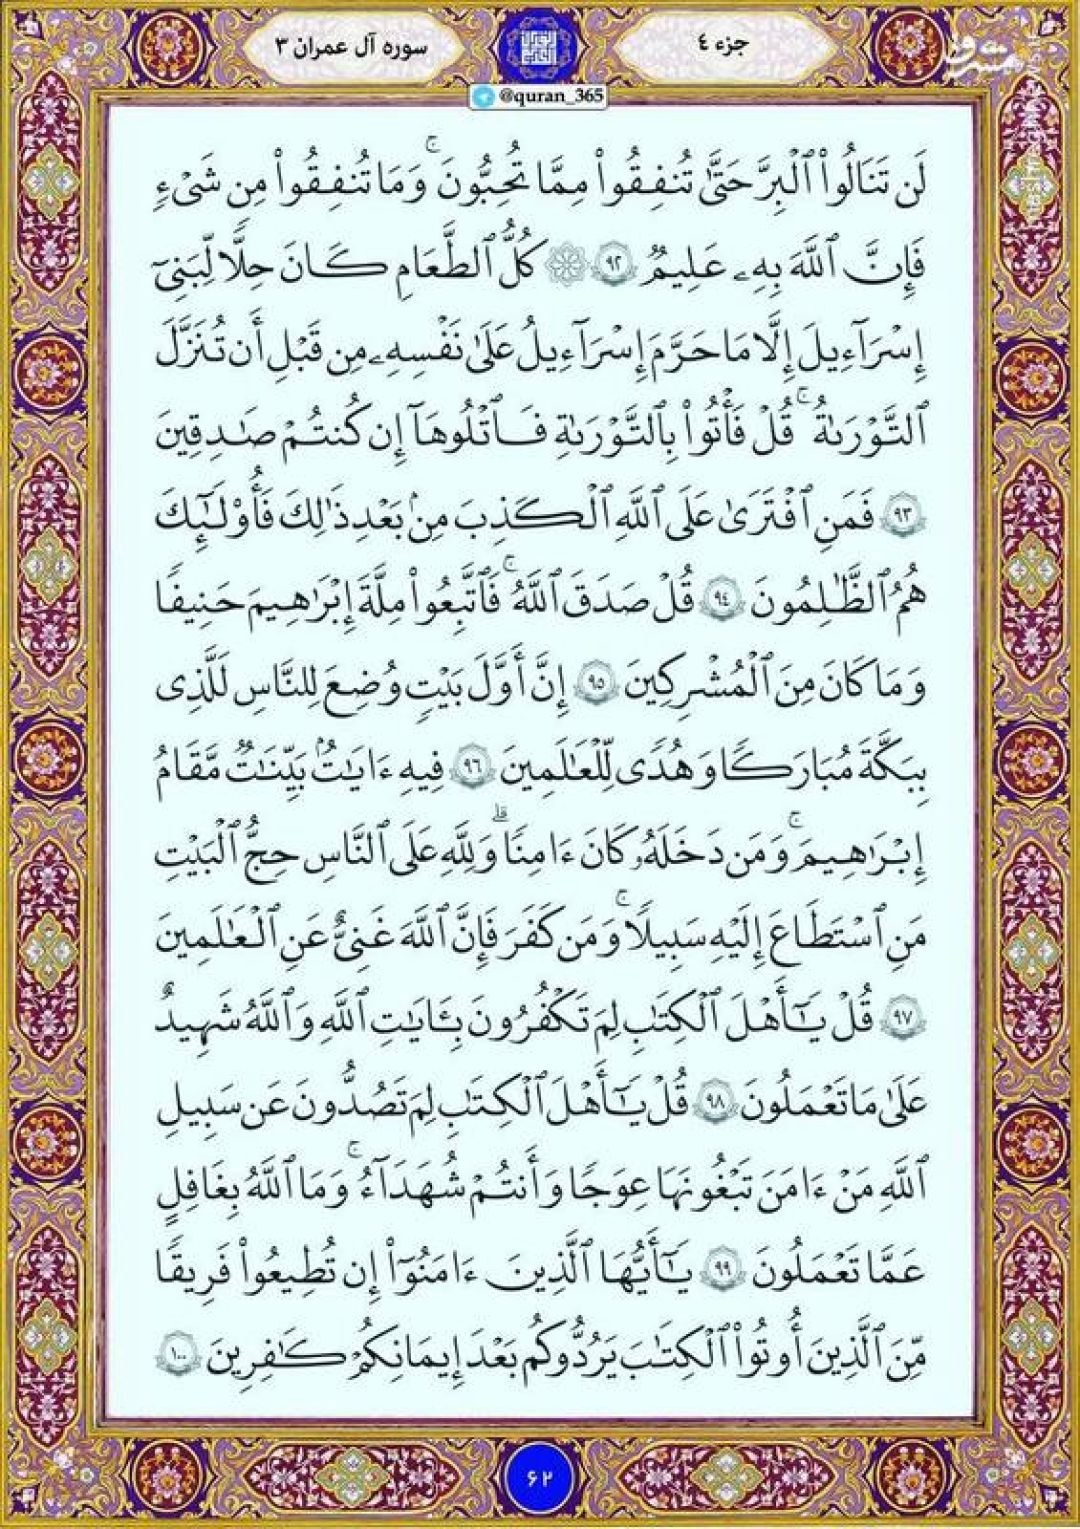 جزء ٤
سوره آل عمران ٣
@quran_365
لَن تَنَالُوا۟ ٱلْبِرَّ حَتَّىٰ تُنفِقُوا۟ مِمَّا تُحِبُّونَ ۚ وَمَا تُنفِقُوا۟ مِن شَىْءٍ
فَإِنَّ ٱللَّهَ بِهِۦ عَلِيمٌ ٩٢ ۞ كُلُّ ٱلطَّعَامِ كَانَ حِلًّا لِّبَنِىٓ
إِسْرَٰٓءِيلَ إِلَّا مَا حَرَّمَ إِسْرَٰٓءِيلُ عَلَىٰ نَفْسِهِۦ مِن قَبْلِ أَن تُنَزَّلَ
ٱلتَّوْرَىٰةُ ۗ قُلْ فَأْتُوا۟ بِٱلتَّوْرَىٰةِ فَٱتْلُوهَآ إِن كُنتُمْ صَٰدِقِينَ
٩٣ فَمَنِ ٱفْتَرَىٰ عَلَى ٱللَّهِ ٱلْكَذِبَ مِنۢ بَعْدِ ذَٰلِكَ فَأُو۟لَٰٓئِكَ
هُمُ ٱلظَّٰلِمُونَ ٩٤ قُلْ صَدَقَ ٱللَّهُ ۗ فَٱتَّبِعُوا۟ مِلَّةَ إِبْرَٰهِيمَ حَنِيفًا
وَمَا كَانَ مِنَ ٱلْمُشْرِكِينَ ٩٥ إِنَّ أَوَّلَ بَيْتٍ وُضِعَ لِلنَّاسِ لَلَّذِى
بِبَكَّةَ مُبَارَكًا وَهُدًى لِّلْعَٰلَمِينَ ٩٦ فِيهِ ءَايَٰتٌۢ بَيِّنَٰتٌ مَّقَامُ
إِبْرَٰهِيمَ ۖ وَمَن دَخَلَهُۥ كَانَ ءَامِنًا ۗ وَلِلَّهِ عَلَى ٱلنَّاسِ حِجُّ ٱلْبَيْتِ
مَنِ ٱسْتَطَاعَ إِلَيْهِ سَبِيلًا ۚ وَمَن كَفَرَ فَإِنَّ ٱللَّهَ غَنِىٌّ عَنِ ٱلْعَٰلَمِينَ
٩٧ قُلْ يَٰٓأَهْلَ ٱلْكِتَٰبِ لِمَ تَكْفُرُونَ بِـَٔايَٰتِ ٱللَّهِ وَٱللَّهُ شَهِيدٌ
عَلَىٰ مَا تَعْمَلُونَ ٩٨ قُلْ يَٰٓأَهْلَ ٱلْكِتَٰبِ لِمَ تَصُدُّونَ عَن سَبِيلِ
ٱللَّهِ مَنْ ءَامَنَ تَبْغُونَهَا عِوَجًا وَأَنتُمْ شُهَدَآءُ ۗ وَمَا ٱللَّهُ بِغَٰفِلٍ
عَمَّا تَعْمَلُونَ ٩٩ يَٰٓأَيُّهَا ٱلَّذِينَ ءَامَنُوٓا۟ إِن تُطِيعُوا۟ فَرِيقًا
مِّنَ ٱلَّذِينَ أُوتُوا۟ ٱلْكِتَٰبَ يَرُدُّوكُم بَعْدَ إِيمَٰنِكُمْ كَٰفِرِينَ ١٠٠
۶۲